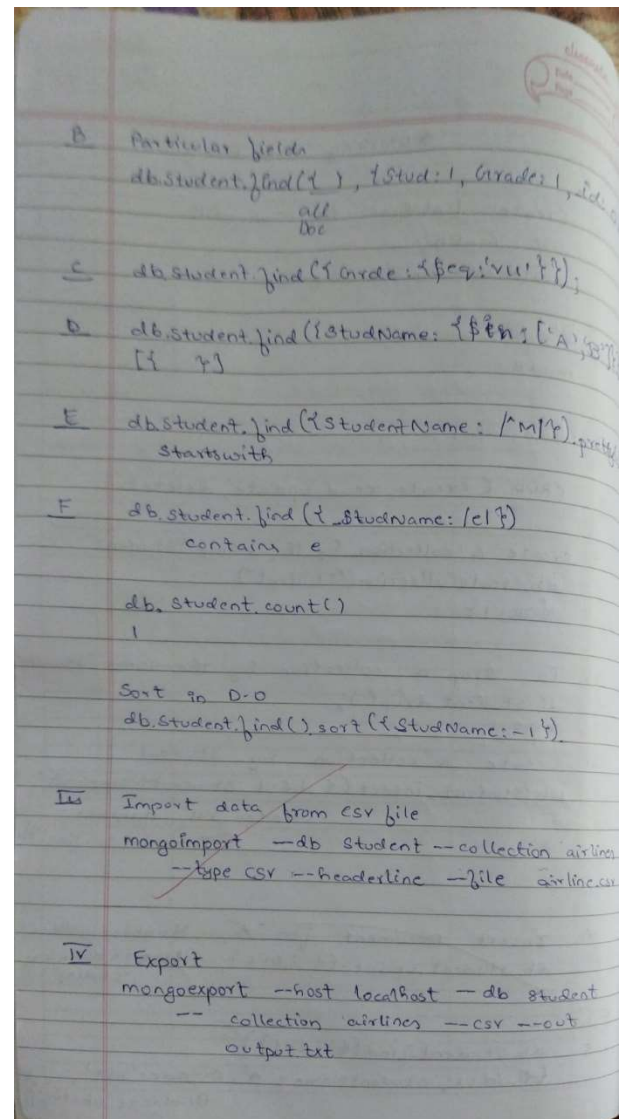 B Particular fields
db.student.find({ }, {Stud:1, Grade:1, _id:
all
Doc
C db.student.find({Grde: {$eq:'VII'}});
D db.student.find({StudName: {$in: ['A','B']}
[{ }]
E db.student.find({StudentName: /^M/}).pretty
Startswith
F db.student.find({ StudName: /e/})
contains e
db.student.count()
1
Sort in D.O
db.Student.find().sort({StudName:-1}).
Import data from csv file
mongoimport --db Student --collection airlines
--type csv --headerline --file airline.csv
IV Export
mongoexport --host localhost --db student
-- collection airlines --csv --out
output.txt